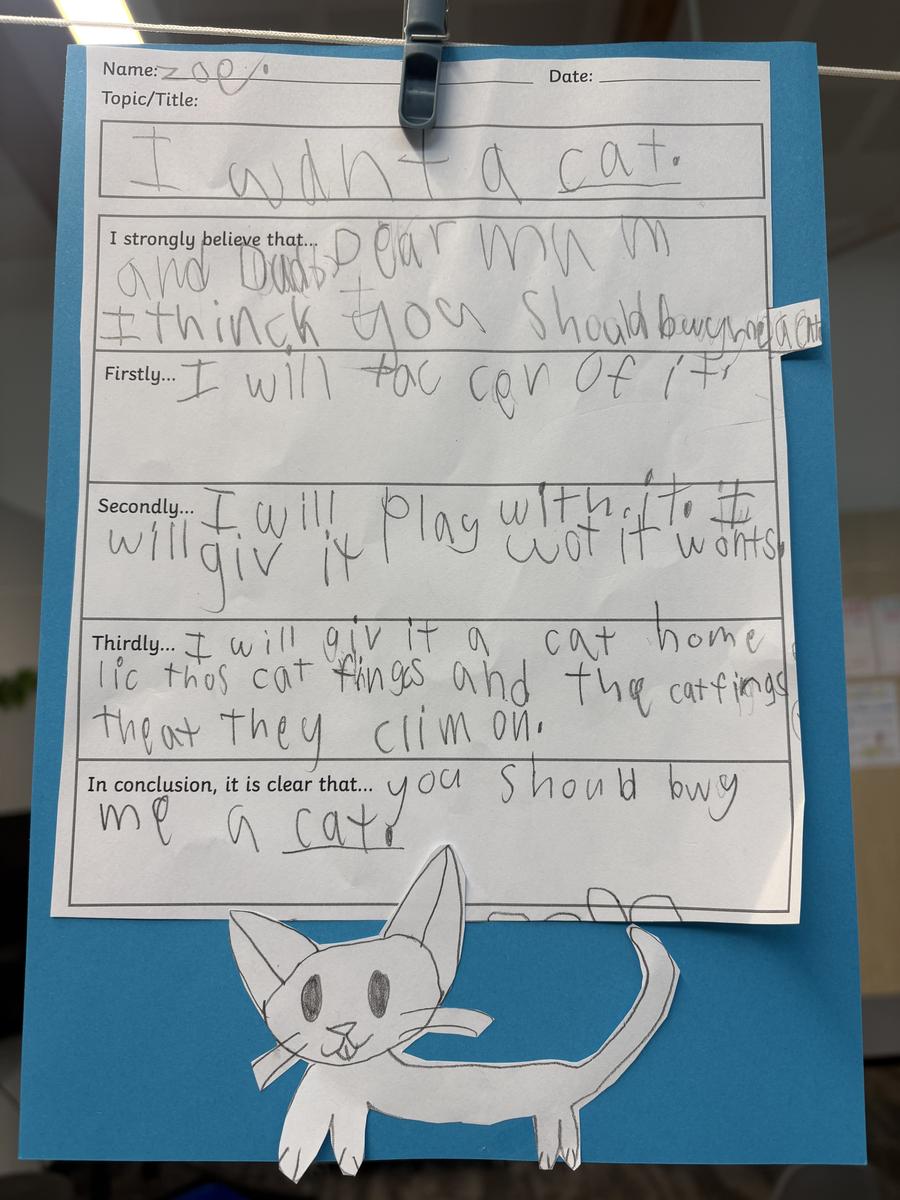 Name: zoe.
Date:
Topic/Title:
I want a cat.
I strongly believe that... Dear mum
and Dad
I thinck you should buy me a cat
Firstly... I will tac cer of it.
Secondly... I will play with it. I
will giv it wot it wonts.
Thirdly... I will giv it a cat home
lic thos cat fings and the cat fings
theat they clim on.
In conclusion, it is clear that... you should bwy
me a cat.